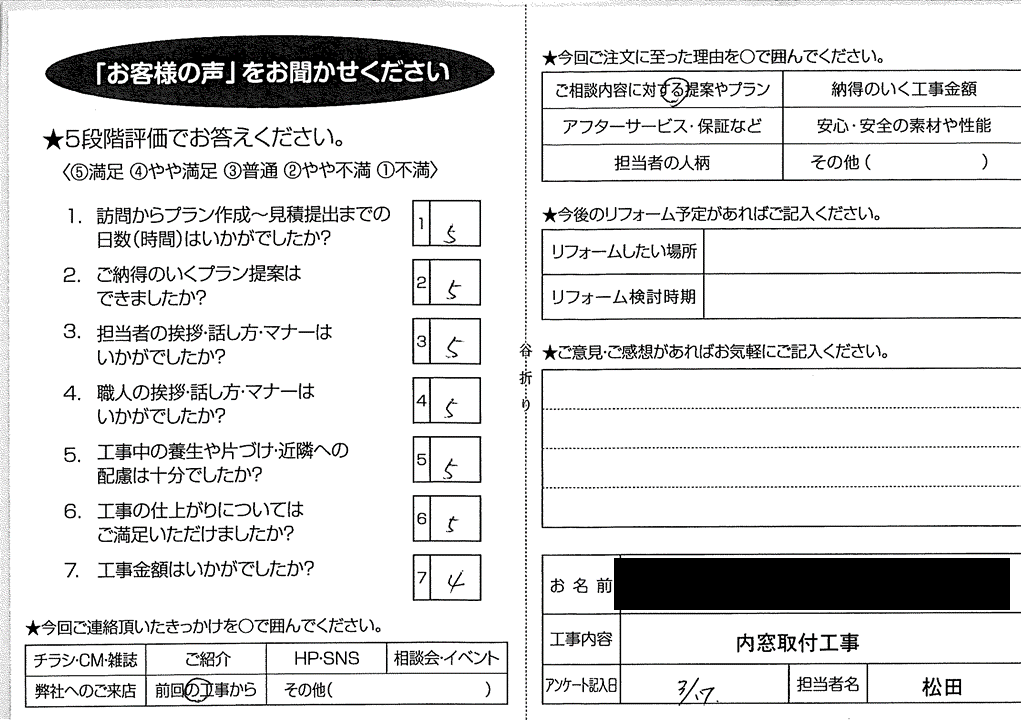 「お客様の声」をお聞かせください
★5段階評価でお答えください。
〈⑤満足 ④やや満足 ③普通 ②やや不満 ①不満〉
1. 訪問からプラン作成～見積提出までの
日数(時間)はいかがでしたか?
1 5
2. ご納得のいくプラン提案は
できましたか?
2 5
3. 担当者の挨拶・話し方・マナーは
いかがでしたか?
3 5
4. 職人の挨拶・話し方・マナーは
いかがでしたか?
4 5
5. 工事中の養生や片づけ・近隣への
配慮は十分でしたか?
5 5
6. 工事の仕上がりについては
ご満足いただけましたか?
6 5
7. 工事金額はいかがでしたか?
7 4
★今回ご連絡頂いたきっかけを〇で囲んでください。
チラシ・CM・雑誌 ご紹介 HP・SNS 相談会・イベント
弊社へのご来店 前回の工事から その他( )
谷折り
★今回ご注文に至った理由を〇で囲んでください。
ご相談内容に対する提案やプラン 納得のいく工事金額
アフターサービス・保証など 安心・安全の素材や性能
担当者の人柄 その他( )
★今後のリフォーム予定があればご記入ください。
リフォームしたい場所
リフォーム検討時期
★ご意見・ご感想があればお気軽にご記入ください。
お名前
工事内容 内窓取付工事
アンケート記入日 3/17. 担当者名 松田